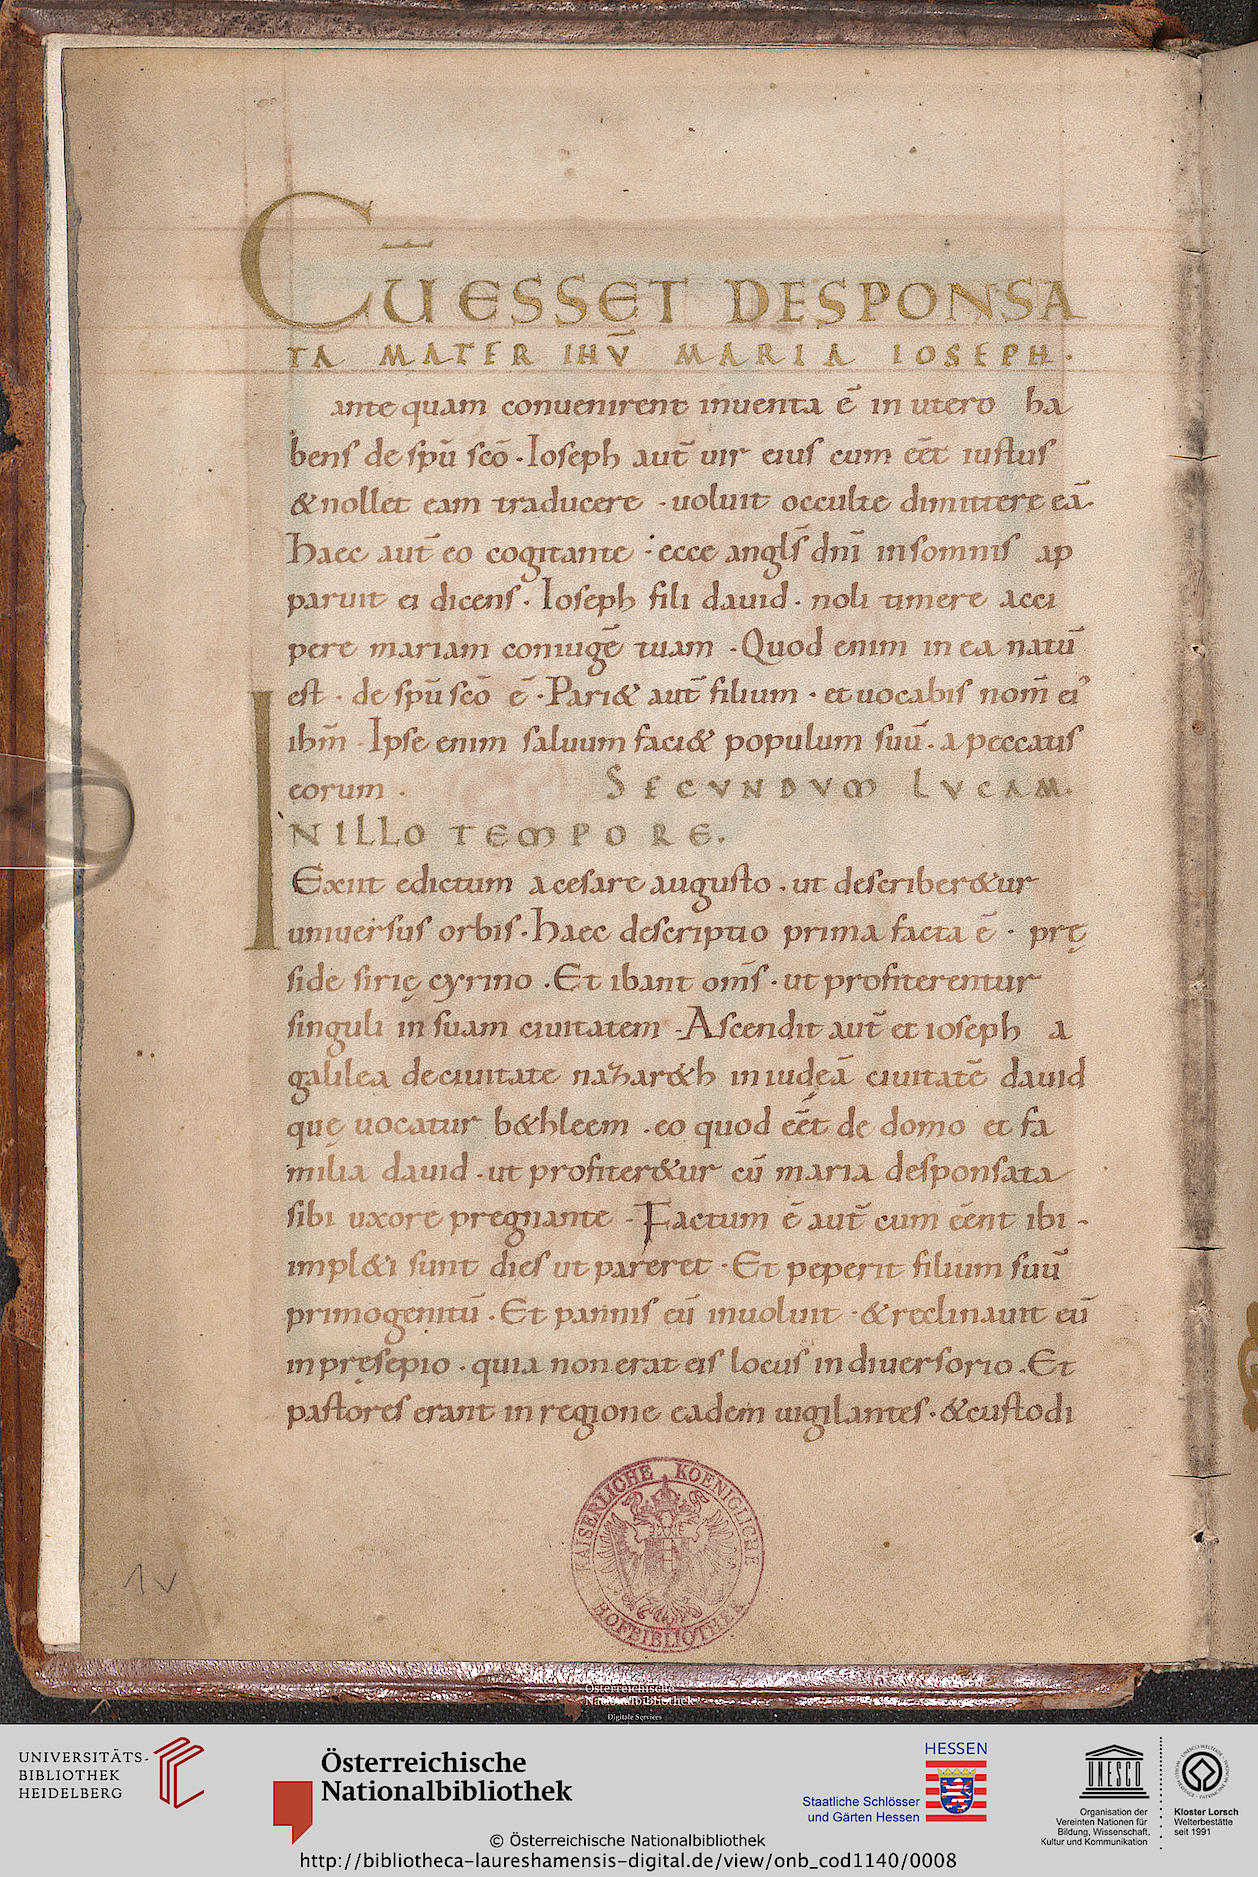 CŪ ESSET DESPONSA
TA MATER IHV̄ MARIA IOSEPH.
ante quam conuenirent inuenta ē in utero ha
bens de sp̄u sc̄o · Ioseph aut̄ uir eius cum eēt iustus
& nollet eam traducere · uoluit occulte dimittere eā.
Haec aut̄ eo cogitante · ecce angls̄ dn̄i in somnis ap
paruit ei dicens · Ioseph fili dauid · noli timere acci
pere mariam coniugē tuam · Quod enim in ea natū
est · de sp̄u sc̄o ē · Pari& aut̄ filium · et uocabis nom̄ ei᾽
ihm̄ · Ipse enim saluum faci& populum suū · a peccatis
eorum · SECUNDUM LUCAM.
IN ILLO TEMPORE.
Exiit edictum a cesare augusto · ut describer&ur
uniuersus orbis · Haec descriptio prima facta ē · prę
side sirię cyrino · Et ibant om̄s · ut profiterentur
singuli in suam ciuitatem · Ascendit aut̄ et ioseph a
galilea de ciuitate nazar&h in iudęā ciuitatē dauid
quę uocatur b&hleem · eo quod eēt de domo et fa
milia dauid · ut profiter&ur cū maria desponsata
sibi uxore pregnante · Factum ē aut̄ cum eēnt ibi ·
impl&i sunt dies ut pareret · Et peperit filium suū
primogenitū · Et pannis eū inuoluit · & reclinauit eū
in pręsepio · quia non erat eis locus in diuersorio · Et
pastores erant in regione eadem uigilantes · & custodi
KAISERLICHE KOENIGLICHE
HOFBIBLIOTHEK
1v
Österreichische
Nationalbibliothek
Digitale Services
UNIVERSITÄTS-
BIBLIOTHEK
HEIDELBERG
Österreichische
Nationalbibliothek
HESSEN
Staatliche Schlösser
und Gärten Hessen
UNESCO
Organisation der
Vereinten Nationen für
Bildung, Wissenschaft,
Kultur und Kommunikation
Kloster Lorsch
Welterbestätte
seit 1991
© Österreichische Nationalbibliothek
http://bibliotheca-laureshamensis-digital.de/view/onb_cod1140/0008